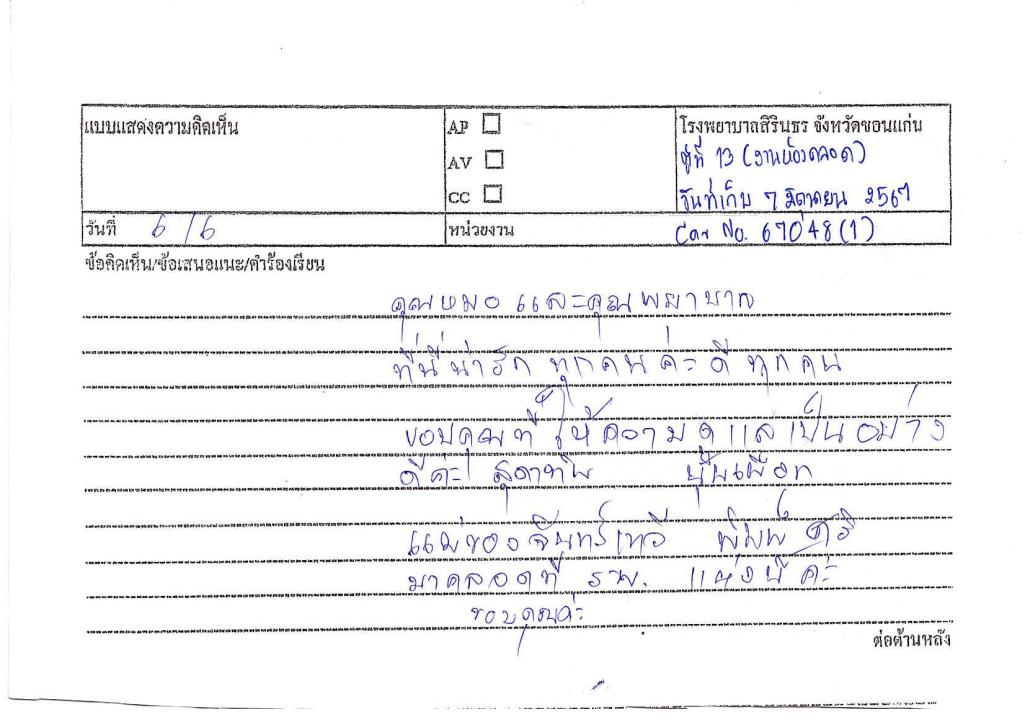 แบบแสดงความคิดเห็น
AP
AV
CC
โรงพยาบาลสิรินธร จังหวัดขอนแก่น
ตู้ที่ 13 (งานห้องคลอด)
วันที่เก็บ 7 มิถุนายน 2567
วันที่ 6/6
หน่วยงาน
Car No. 67048(1)
ข้อคิดเห็น/ข้อเสนอแนะ/คำร้องเรียน
คุณหมอ และคุณพยาบาล
ที่นี่น่ารัก ทุกคนค่ะ ดี ทุกคน
ขอบคุณที่ ให้ความดูแลเป็นอย่าง
ดีค่ะ สุดาทิพ
แม่ของจันทร์เทวี
มาคลอดที่ รพ. แห่งนี้ ค่ะ
ขอบคุณค่ะ
ต่อด้านหลัง